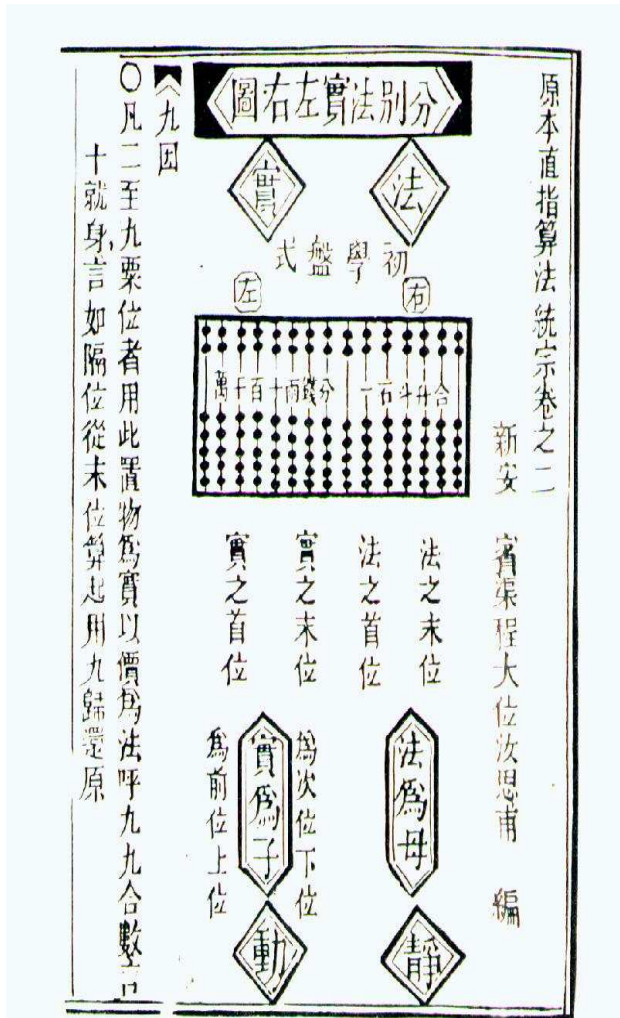 原本直指算法統宗卷之二
新安 賓渠程大位汝思甫 編
分別法實左右圖
法
實
初學盤式
右
左
合升斗石一 分錢兩十百千萬
法之末位
法之首位
實之末位
實之首位
法爲母
靜
爲次位下位
實爲子
爲前位上位
動
九因
〇凡二至九單位者用此置物爲實以價爲法呼九九合數言
十就身言如隔位從末位算起用九歸還原